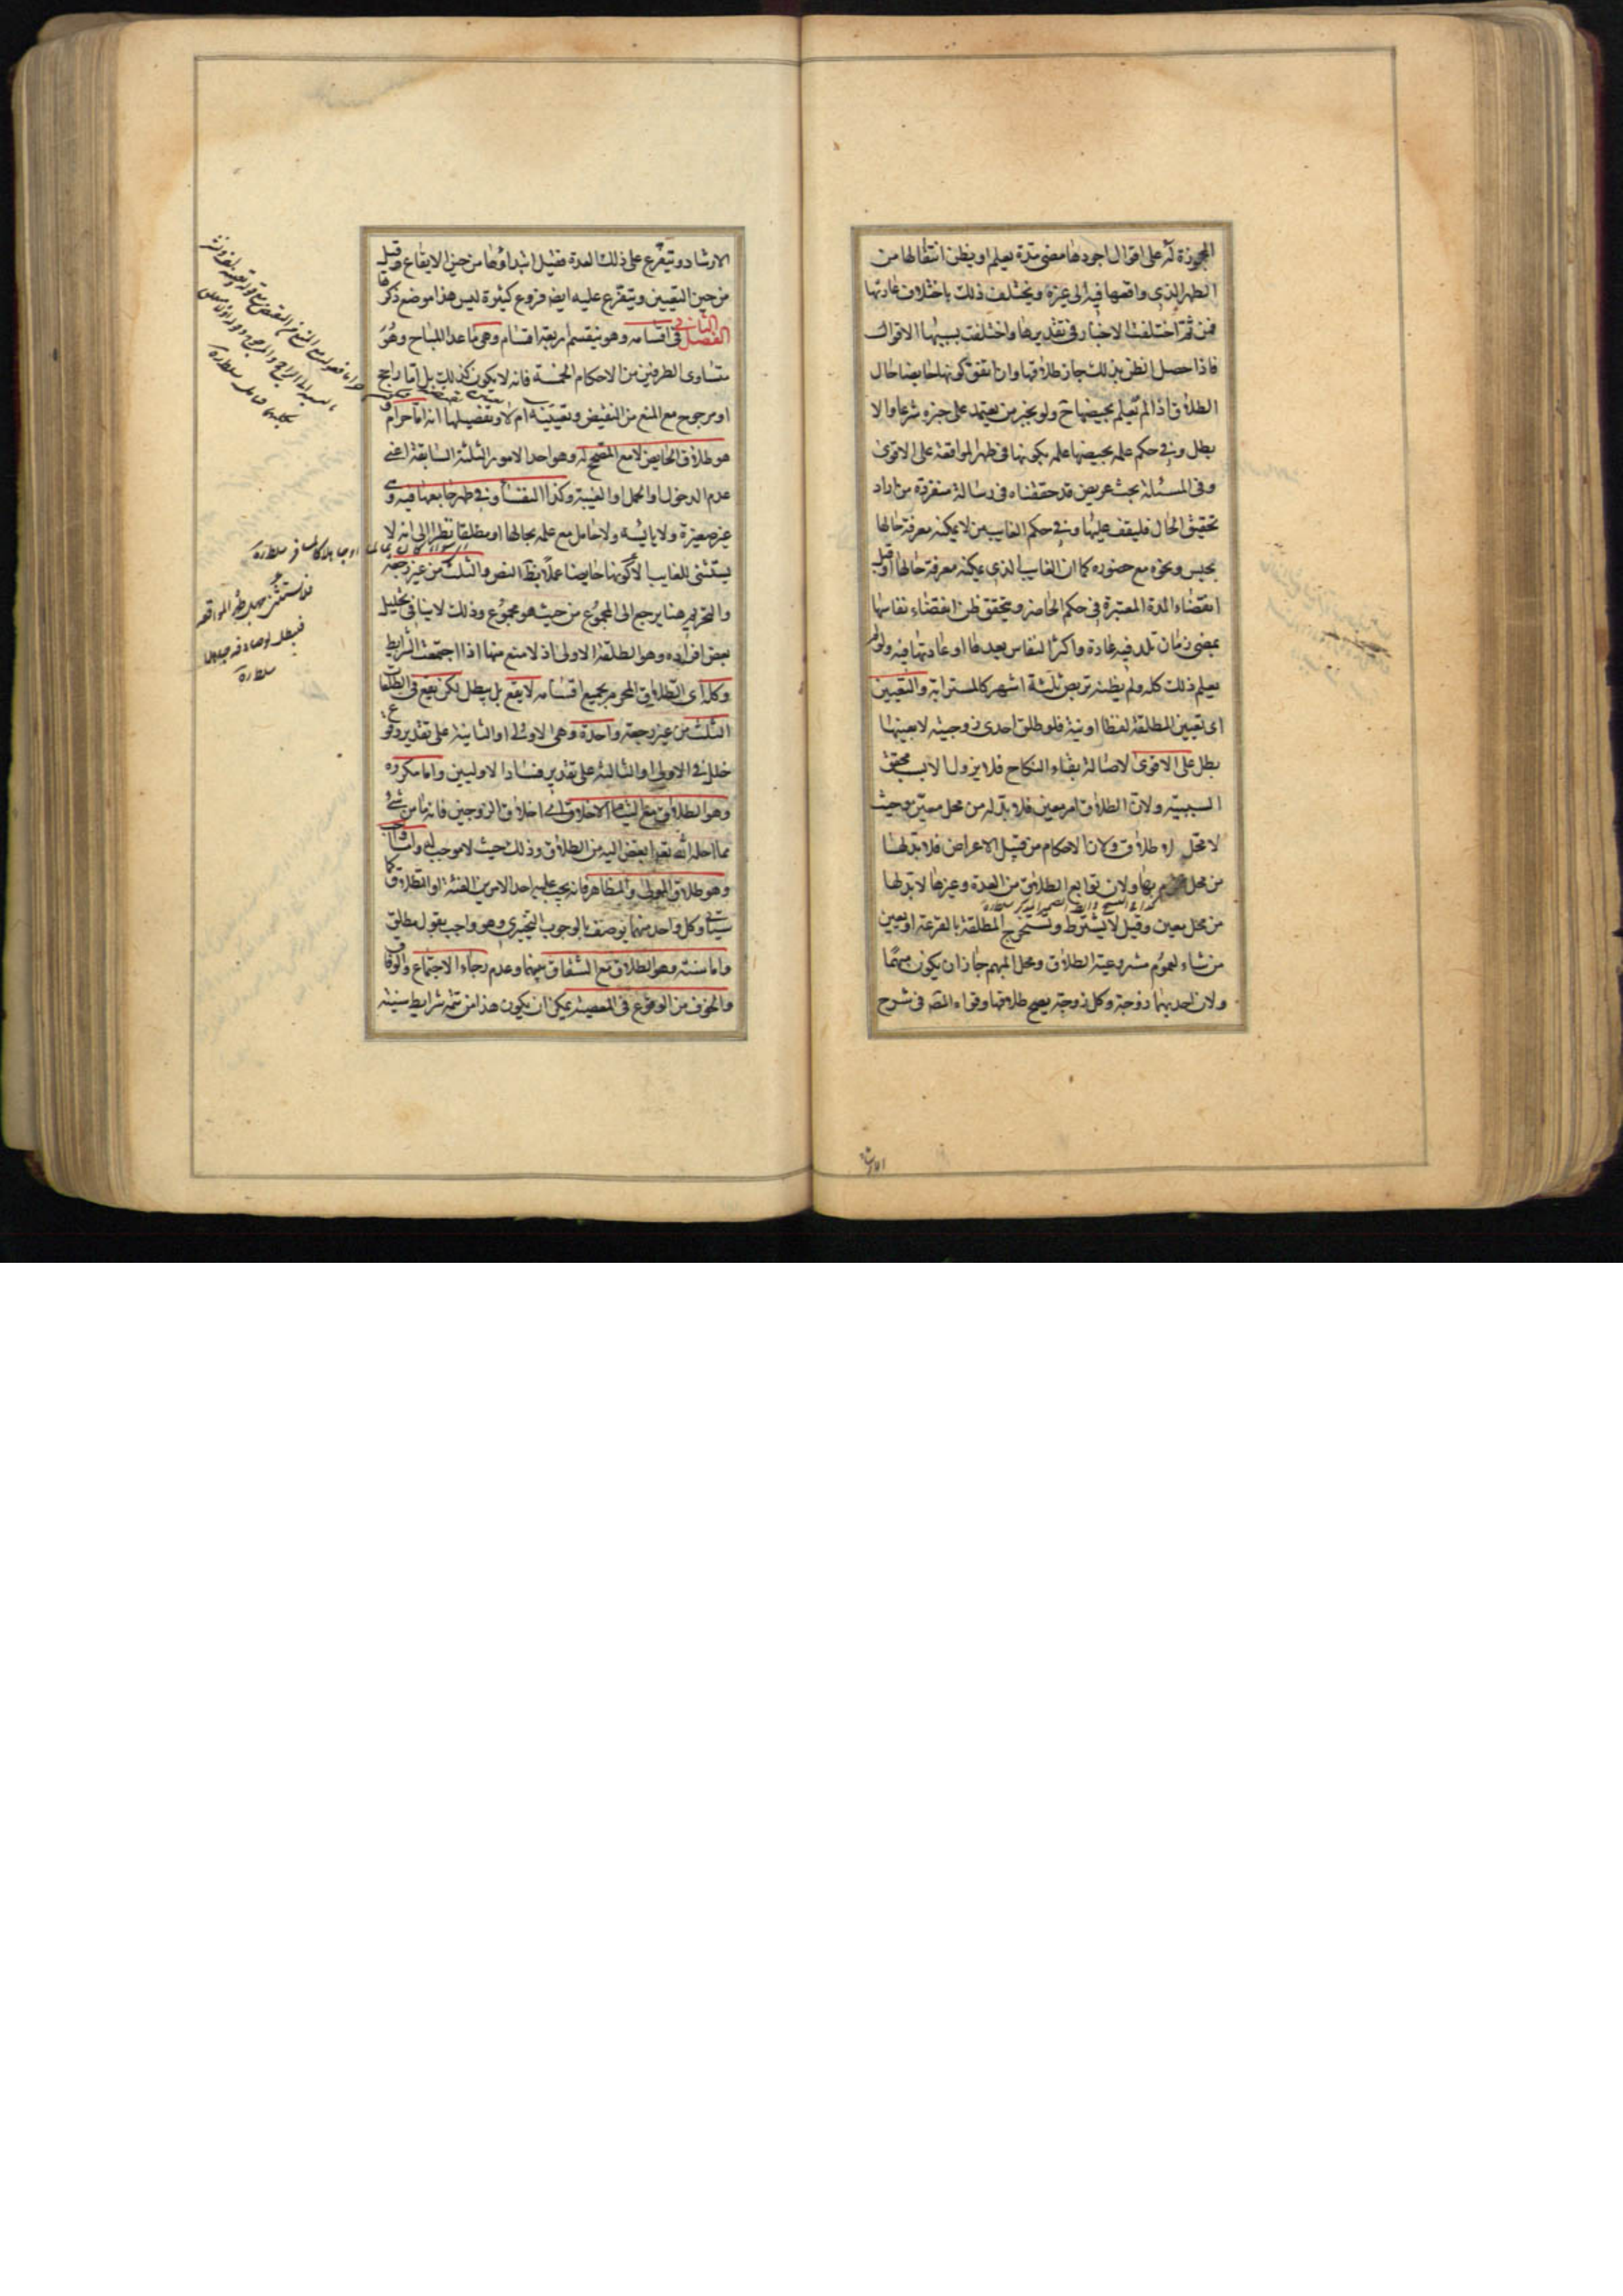 المجوزة له على اقوال اجودها مضى مدة يعلم او يظن انتقالها من
الطهر الذي واقعها فيه الى غيره ويختلف ذلك باختلاف عادتها
فمن ثم اختلفت الاخبار في تقديرها واختلفت بسببها الاقوال
فاذا حصل الظن بذلك جاز طلاقها وان اتفق كونها حايضا حال
الطلاق اذا لم يعلم بحيضها ح ولو بخبر من يعتمد على خبره شرعا والا
بطل وفي حكم علمه بحيضها علمه بكونها في طهر المواقعة على الاقوى
وفي المسئلة بحث عريض قد حققناه في رسالة منفردة من اراد
تحقيق الحال فليقف عليها وفي حكم الغايب من لا يمكنه معرفة حالها
بحبس ونحوه مع حضوره كما ان الغايب الذي يمكنه معرفة حالها او قبل
انقضاء المدة المعتبرة في حكم الحاضر ويتحقق ظن انقضاء نفاسها
بمضى زمان تلد فيه عادة واكثر النفاس بعدها او عادتها فيه ولو لم
يعلم ذلك كله ولم يظنه تربص ثلثة اشهر كالمسترابة والتعيين
اى تعيين المطلقة لفظا او نية فلو طلق احدى زوجيته لا بعينها
بطل على الاقوى لاصالة بقاء النكاح فلا يزول الا بسبب محقق
السببية ولان الطلاق امر معين فلا بد له من محل معين وحيث
لا محل له طلاق ولان الاحكام من قبيل الاعراض فلا بد لها
من محل بها ولان توابع الطلاق من العدة وغيرها لا بد لها
من محل معين وقيل لا يشترط وتستخرج المطلقة بالقرعة او يعين
من شاء لعموم مشروعية الطلاق ومحل المبهم جاز ان يكون مبهما
ولان احديهما زوجة وكل زوجة يصح طلاقها وقواه المصـ في شرح
الارشاد
الارشاد ويتفرع على ذلك العدة فقيل ابتداؤها من حين الايقاع وقيل
من حين التعيين ويتفرع عليه ايضـ فروع كثيرة ليس هذا موضع ذكرها
الفصل الثاني في اقسامه وهو ينقسم اربعة اقسام وهى ما عدا المباح وهو
متساوى الطرفين من الاحكام الخمسة فانه لا يكون كذلك بل اما راجح
او مرجوح مع المنع من النقيض وتعيينه ام لا وتفصيلها انه اما حرام و
هو طلاق الحايض لا مع المصحح له وهو احد الامور الثلثة السابقة اعنى
عدم الدخول او الحمل او الغيبة وكذا النفساء وفي طهر جامعها فيه وهى
غير صغيرة ولا يائسة ولا حامل مع علمه بحالها او مطلقا نظرا الى انه لا
يستثنى للغايب الا كونها حايضا عملا بظـ النص والثلث من غير رجعة
والتحريم هنا يرجع الى المجموع من حيث هو مجموع وذلك لا ينافى تحليل
بعض افراده وهو الطلقة الاولى اذ لا منع منها اذا اجتمعت الشرايط
وكله اى الطلاق المحرم بجميع اقسامه لا يقع بل يبطل لكن يقع في الطلقات
الثلث من غير رجعة واحدة وهى الاولى او الثانية على تقدير وقوع
خلل في الاولى او الثالثة على تقدير فساد الاوليين واما مكروه
وهو الطلاق مع التيام الاخلاق اى اخلاق الزوجين فانه ما من شئ
مما احله الله تعـ ابغض اليه من الطلاق وذلك حيث لا موجب له واما واجب
وهو طلاق المولى والمظاهر فانه يجب عليه احد الامرين الفئة او الطلاق كما
سياتى وكل واحد منهما يوصف بالوجوب التخييرى وهو واجب بقول مطلق
واما سنة وهو الطلاق مع الشقاق بينهما وعدم رجاء الاجتماع والوفاق
والخوف من الوقوع في المعصية يمكن ان يكون هذا من تتمة شرايط سنيته